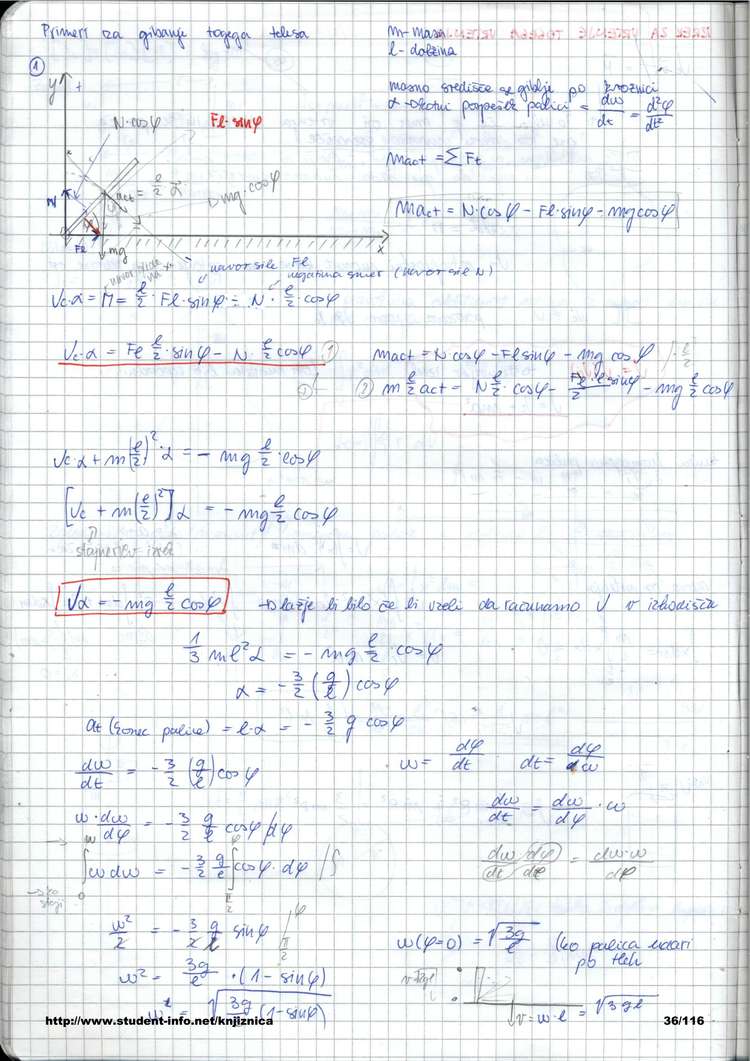 Primeri za gibanje togega telesa
m - masa
l - dolžina
①
masno središče se giblje po krožnici
α - kotni pospešek palici = dω/dt = d²φ/dt²
y
N·cosφ
Fl·sinφ
act = l/2 α
mg·cosφ
N
Fl
mg
x
mact = ΣFt
mact = N·cosφ - Fl·sinφ - mg cosφ
navor sile Fl
negativna smer (navor sile N)
Jc·α = M = l/2·Fl·sinφ - N·l/2·cosφ
Jc·α = Fl l/2·sinφ - N·l/2 cosφ ①
mact = N cosφ - Fl sinφ - mg cosφ /·l/2
② m l/2 act = N l/2·cosφ - Fl·l·sinφ/2 - mg l/2 cosφ
Jc·α + m(l/2)²·α = - mg l/2·cosφ
[Jc + m(l/2)²]α = - mg l/2 cosφ
Jα = - mg l/2 cosφ → lažje bi bilo če bi vzeli da računamo J v izhodišču
1/3 ml²α = - mg l/2·cosφ
α = - 3/2 (g/l) cosφ
at (konec palice) = l·α = - 3/2 g cosφ
dω/dt = - 3/2 (g/l) cosφ
ω = dφ/dt dt = dφ/ω
dω/dt = dω/dφ·ω
ω·dω/dφ = - 3/2 g/l cosφ /dφ
∫ω dω = - 3/2 g/l ∫cosφ·dφ /∫
ω
0
φ
π/2
dω/dt dφ/dφ = dω·ω/dφ
ω²/2 = - 3/2 g/l sinφ
φ
π/2
ω² = 3g/l·(1 - sinφ)
ω = √3g/l (1-sinφ)
ω(φ=0) = √3g/l (ko palica udari po tleh
v = ω·l = √3gl
http://www.student-info.net/knjiznica
36/116